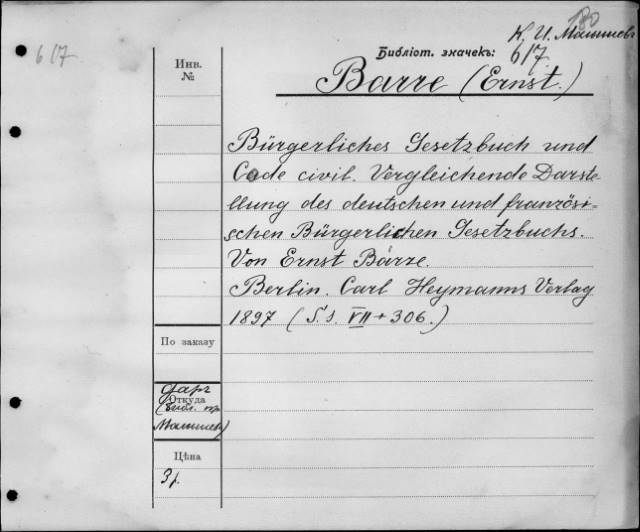 180
К. И. Малышевъ
617
Библіот. значекъ:
617.
Инв.
№
Barre (Ernst.)
Bürgerliches Gesetzbuch und
Code civil. Vergleichende Darste-
llung des deutschen und französi-
schen Bürgerlichen Gesetzbuchs.
Von Ernst Barre.
Berlin. Carl Heymanns Verlag
1897 (S.s. VII + 306.)
По заказу
даръ
Откуда
(Библ. пр.
Малышева)
Цѣна
3 р.